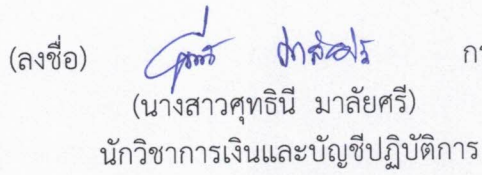 (ลงชื่อ) ก
(นางสาวศุทธินี มาลัยศรี)
นักวิชาการเงินและบัญชีปฏิบัติการ